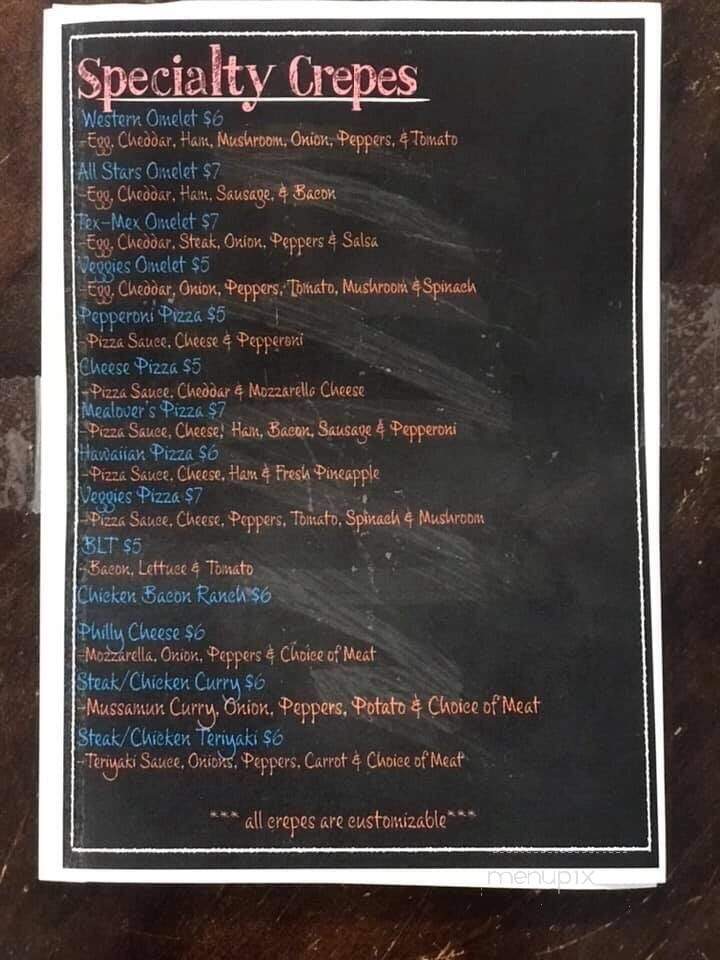 Specialty Crepes
Western Omelet $6
-Egg, Cheddar, Ham, Mushroom, Onion, Peppers, & Tomato
All Stars Omelet $7
-Egg, Cheddar, Ham, Sausage, & Bacon
Tex-Mex Omelet $7
-Egg, Cheddar, Steak, Onion, Peppers & Salsa
Veggies Omelet $5
-Egg, Cheddar, Onion, Peppers, Tomato, Mushroom & Spinach
Pepperoni Pizza $5
-Pizza Sauce, Cheese & Pepperoni
Cheese Pizza $5
-Pizza Sauce, Cheddar & Mozzarella Cheese
Mealover's Pizza $7
-Pizza Sauce, Cheese, Ham, Bacon, Sausage & Pepperoni
Hawaiian Pizza $6
-Pizza Sauce, Cheese, Ham & Fresh Pineapple
Veggies Pizza $7
-Pizza Sauce, Cheese, Peppers, Tomato, Spinach & Mushroom
BLT $5
-Bacon, Lettuce & Tomato
Chicken Bacon Ranch $6
Philly Cheese $6
-Mozzarella, Onion, Peppers & Choice of Meat
Steak/Chicken Curry $6
-Mussamun Curry, Onion, Peppers, Potato & Choice of Meat
Steak/Chicken Teriyaki $6
-Teriyaki Sauce, Onions, Peppers, Carrot & Choice of Meat
*** all crepes are customizable***
menupix